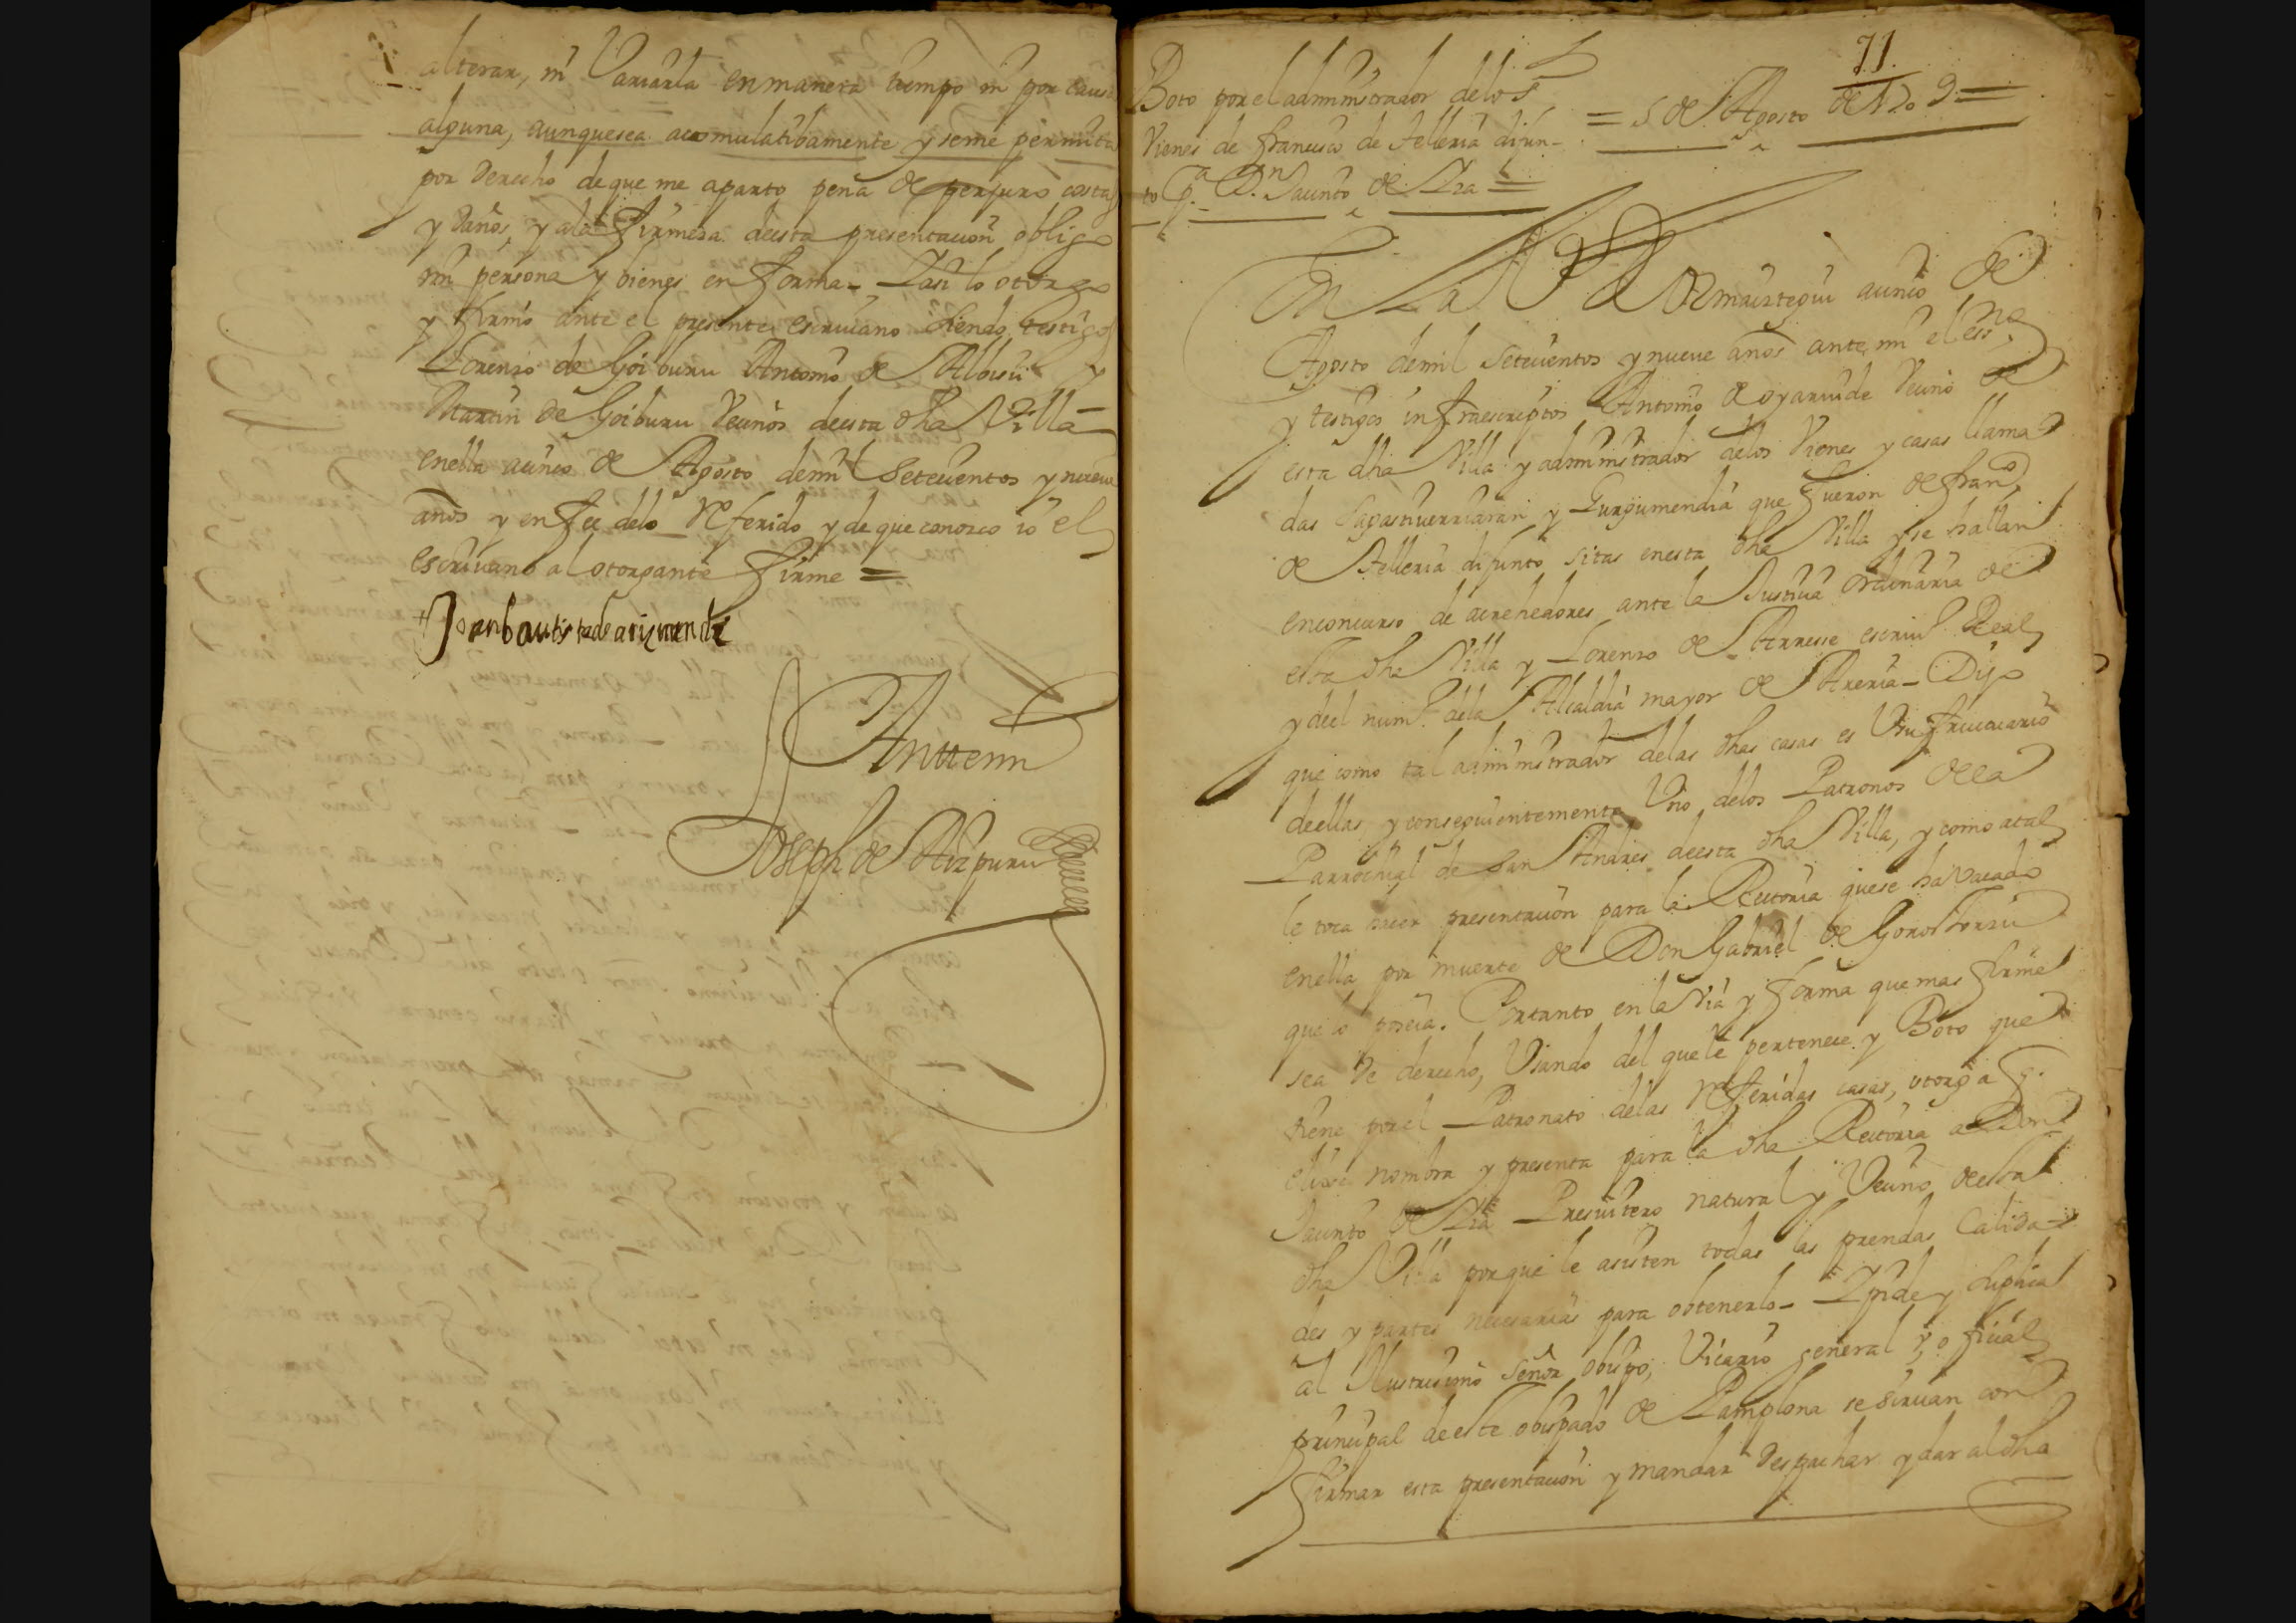 alterar, ni Variarla en manera tiempo ni por causa
alguna, aunque sea acomulatibamente y seme permita
por derecho de que me aparto pena de perjuro costas
y daños, y ala firmeza deesta presentacion obligo
mi persona y bienes en forma – Y asi lo otorgo
y firmo ante el presente escriuano siendo testigos
Lorenzo de Goiburu Antonio de Albisu y
Martin de Goiburu Vecinos deesta dha Villa –
enella acinco de Agosto demil Setecientos y nueue
años y en fee delo Referido y de que conozco io el
escriuano al otorgante firme =
Joan bautista de arizmendi
Antemi
Joseph de Aizpuru
71.
Boto por el administrador delos
Vienes de Francisco de Telleria difun-
to Pa. Dn. Jacinto de Lza =
= 5 de Agosto de 1709 =
En La Va. de Ormaiztegui acinco de
Agosto demil Setecientos y nueve años ante mi el essno.
y testigos infraescriptos Antonio de oyarvide Vecino de
esta dha Villa y administrador delos Vienes y casas llama
das Sagastiverriaran y Gurgumendia que fueron de Franco.
de Telleria difunto sitas enesta dha Villa y se hallan
enconcurso de acrehedores ante la Justicia ordinaria de
esta dha Villa y Lorenzo de Arresse escriuo. Real
y deel numo. dela Alcaldia mayor de Areria – Dijo
que como tal administrador delas dhas casas es Usufructuario
deellas y conseguientemente Vno delos Patronos dela
Parrochial de San Andres deesta dha Villa, y como atal
le toca hacer presentacion para la Rectoria que se ha vacado
enella por muerte de Don Gabriel de Gorosterzu
que lo poseia. Portanto en la Via y forma que mas firme
sea de derecho, Vsando del que le pertenece y Boto que
tiene por el Patronato delas Referidas casas, otorga q.
elixe nombra y presenta para la dha Rectoria a Don
Jacinto de Lza Presuitero natural y Vecino deesta
dha Villa porque le asisten todas las prendas Calida-
des y partes necesarias para obtenerlo – Y pide y suplica
al Illustrisimo Señor obispo, Vicario general y oficial
principal deeste obispado de Pamplona se siruan con
firmar esta presentacion y mandar despachar y dar al dha